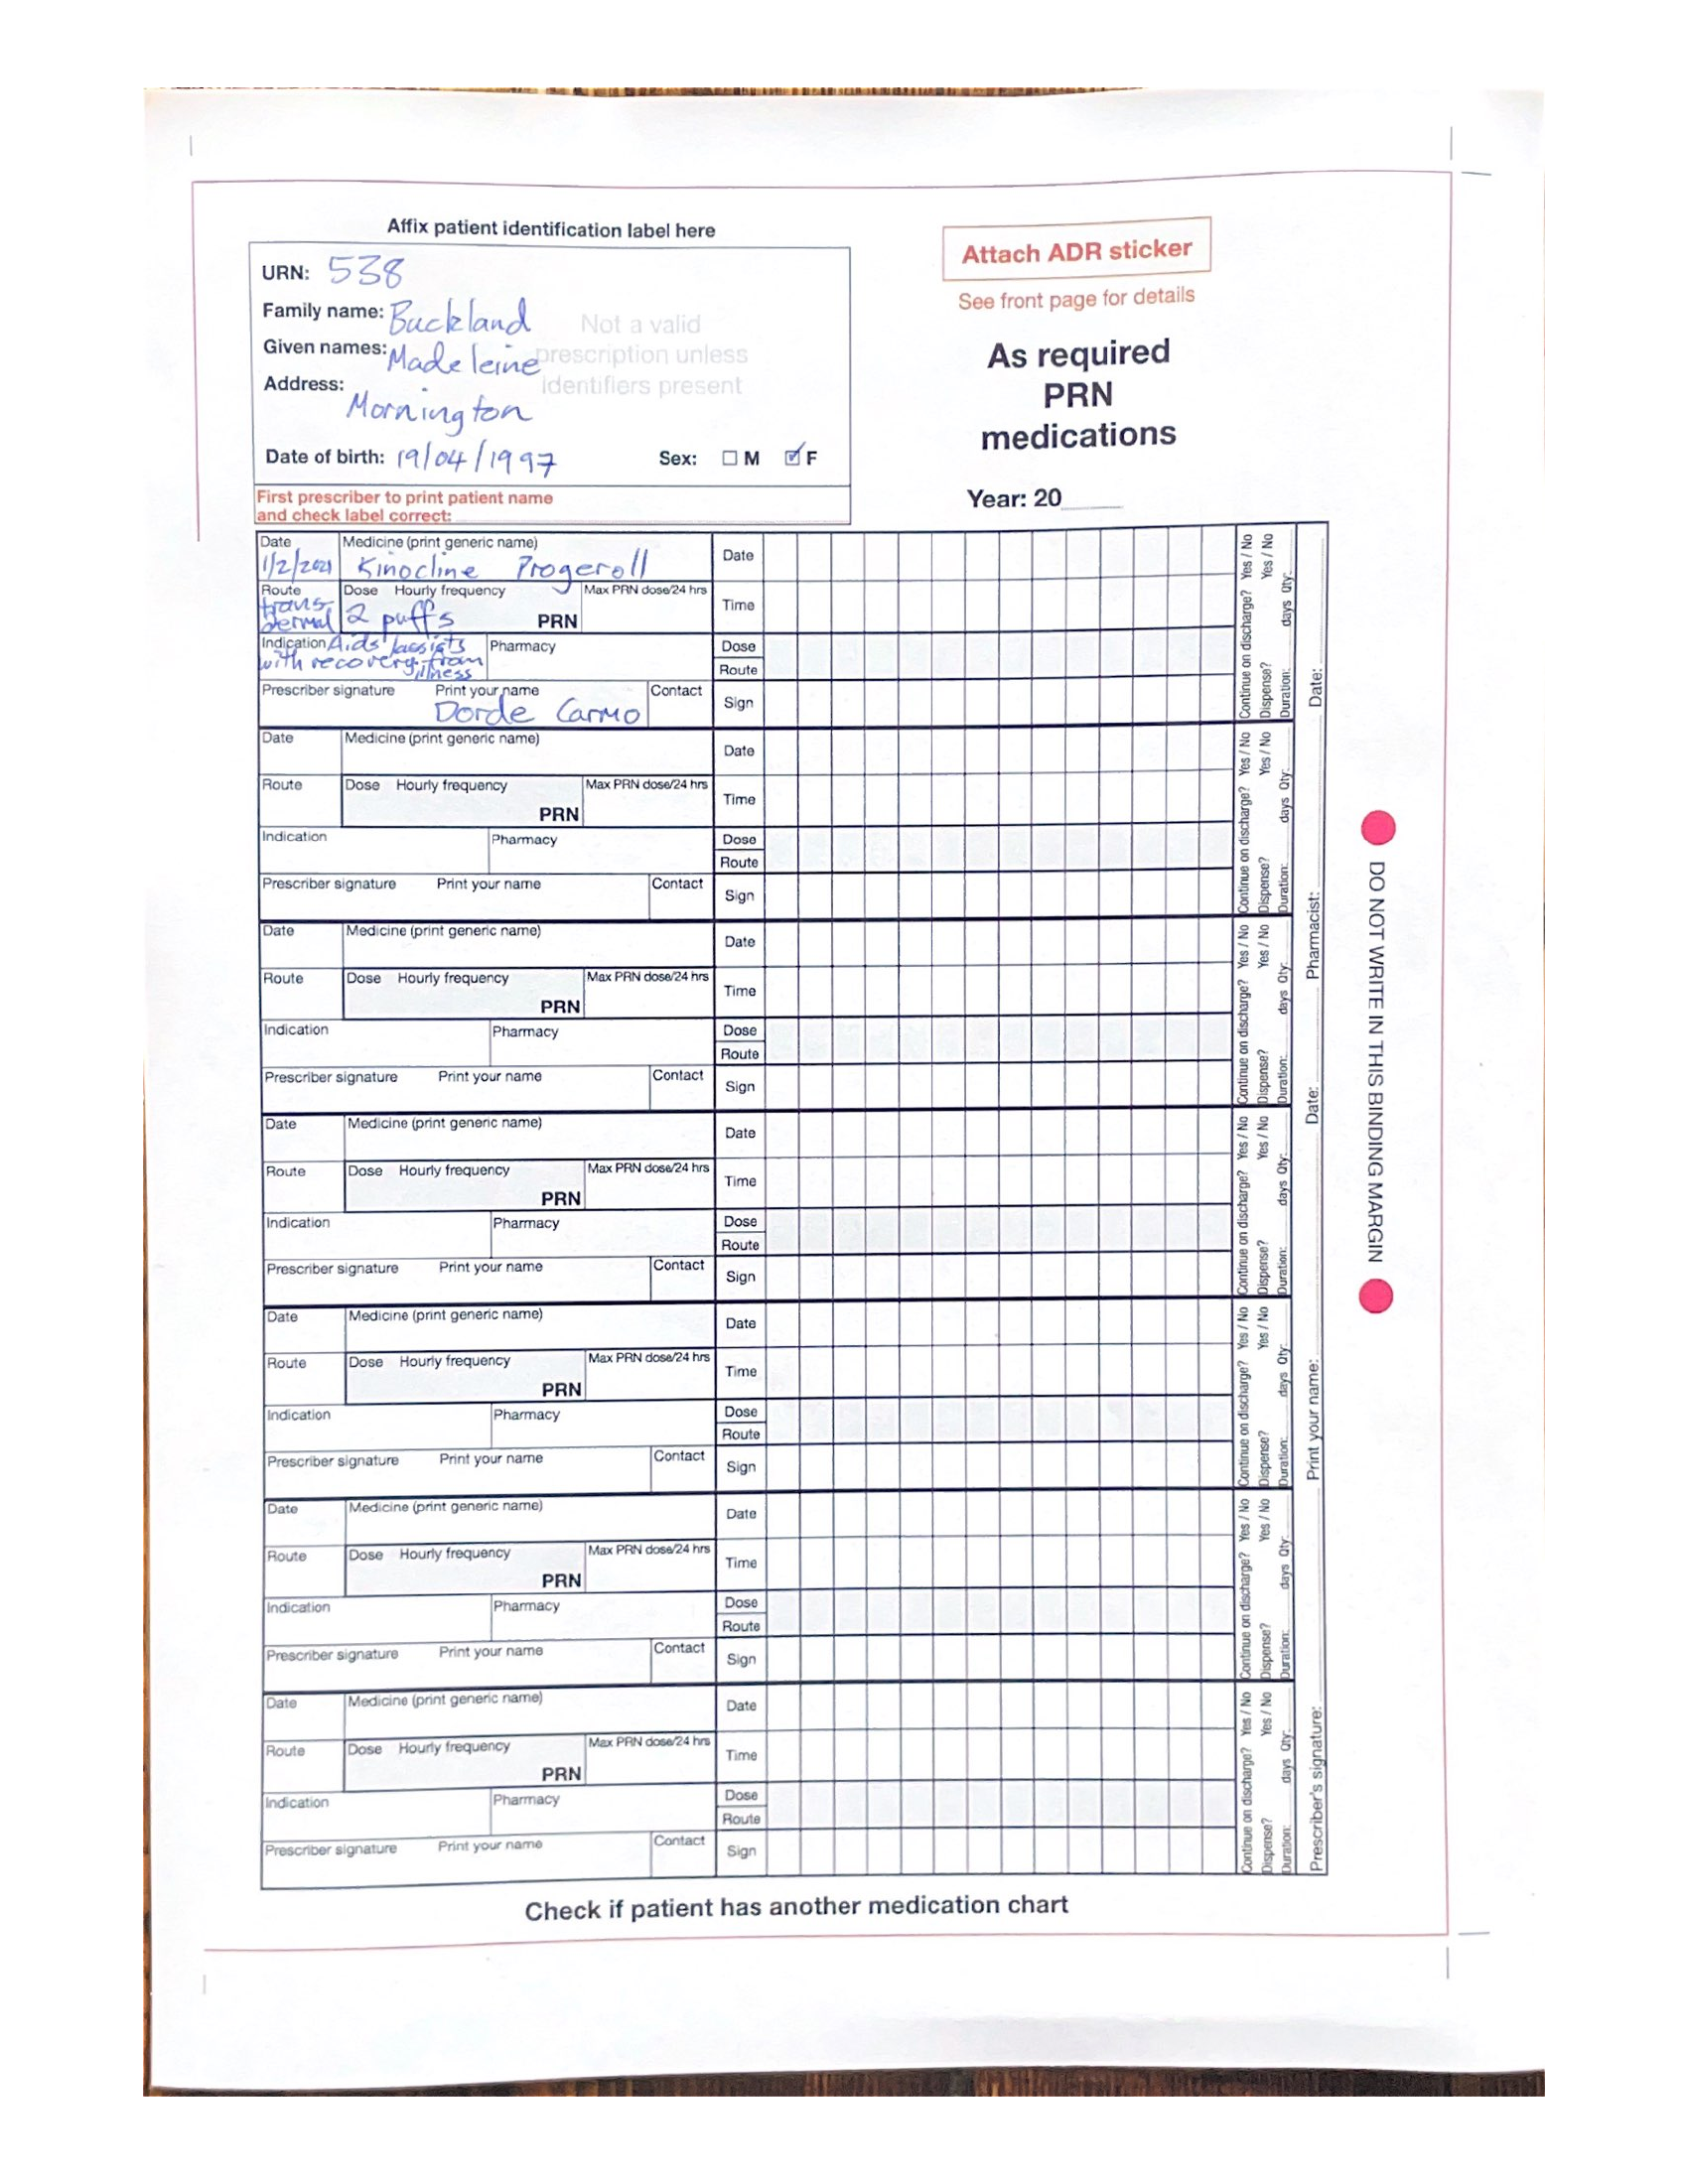 Affix patient identification label here
URN: 538
Family name: Buckland
Given names: Madeleine
Address:
Mornington
Not a valid
prescription unless
identifiers present
Date of birth: 19/04/1997 Sex: M F
First prescriber to print patient name
and check label correct:
Attach ADR sticker
See front page for details
As required
PRN
medications
Year: 20
Date Medicine (print generic name)
1/2/2021 Kinocline Progeroll
Route Dose Hourly frequency Max PRN dose/24 hrs
trans
dermal 2 puffs PRN
Indication Aids/assists Pharmacy
with recovery from
illness
Prescriber signature Print your name Contact
Dorde Carmo
Date
Time
Dose
Route
Sign
Continue on discharge? Yes / No
Dispense? Yes / No
Duration: days Qty:
Date Medicine (print generic name)
Route Dose Hourly frequency Max PRN dose/24 hrs
PRN
Indication Pharmacy
Prescriber signature Print your name Contact
Date
Time
Dose
Route
Sign
Continue on discharge? Yes / No
Dispense? Yes / No
Duration: days Qty:
Date Medicine (print generic name)
Route Dose Hourly frequency Max PRN dose/24 hrs
PRN
Indication Pharmacy
Prescriber signature Print your name Contact
Date
Time
Dose
Route
Sign
Continue on discharge? Yes / No
Dispense? Yes / No
Duration: days Qty:
Date Medicine (print generic name)
Route Dose Hourly frequency Max PRN dose/24 hrs
PRN
Indication Pharmacy
Prescriber signature Print your name Contact
Date
Time
Dose
Route
Sign
Continue on discharge? Yes / No
Dispense? Yes / No
Duration: days Qty:
Date Medicine (print generic name)
Route Dose Hourly frequency Max PRN dose/24 hrs
PRN
Indication Pharmacy
Prescriber signature Print your name Contact
Date
Time
Dose
Route
Sign
Continue on discharge? Yes / No
Dispense? Yes / No
Duration: days Qty:
Date Medicine (print generic name)
Route Dose Hourly frequency Max PRN dose/24 hrs
PRN
Indication Pharmacy
Prescriber signature Print your name Contact
Date
Time
Dose
Route
Sign
Continue on discharge? Yes / No
Dispense? Yes / No
Duration: days Qty:
Date Medicine (print generic name)
Route Dose Hourly frequency Max PRN dose/24 hrs
PRN
Indication Pharmacy
Prescriber signature Print your name Contact
Date
Time
Dose
Route
Sign
Continue on discharge? Yes / No
Dispense? Yes / No
Duration: days Qty:
Prescriber's signature: Print your name: Date: Pharmacist: Date:
DO NOT WRITE IN THIS BINDING MARGIN
Check if patient has another medication chart